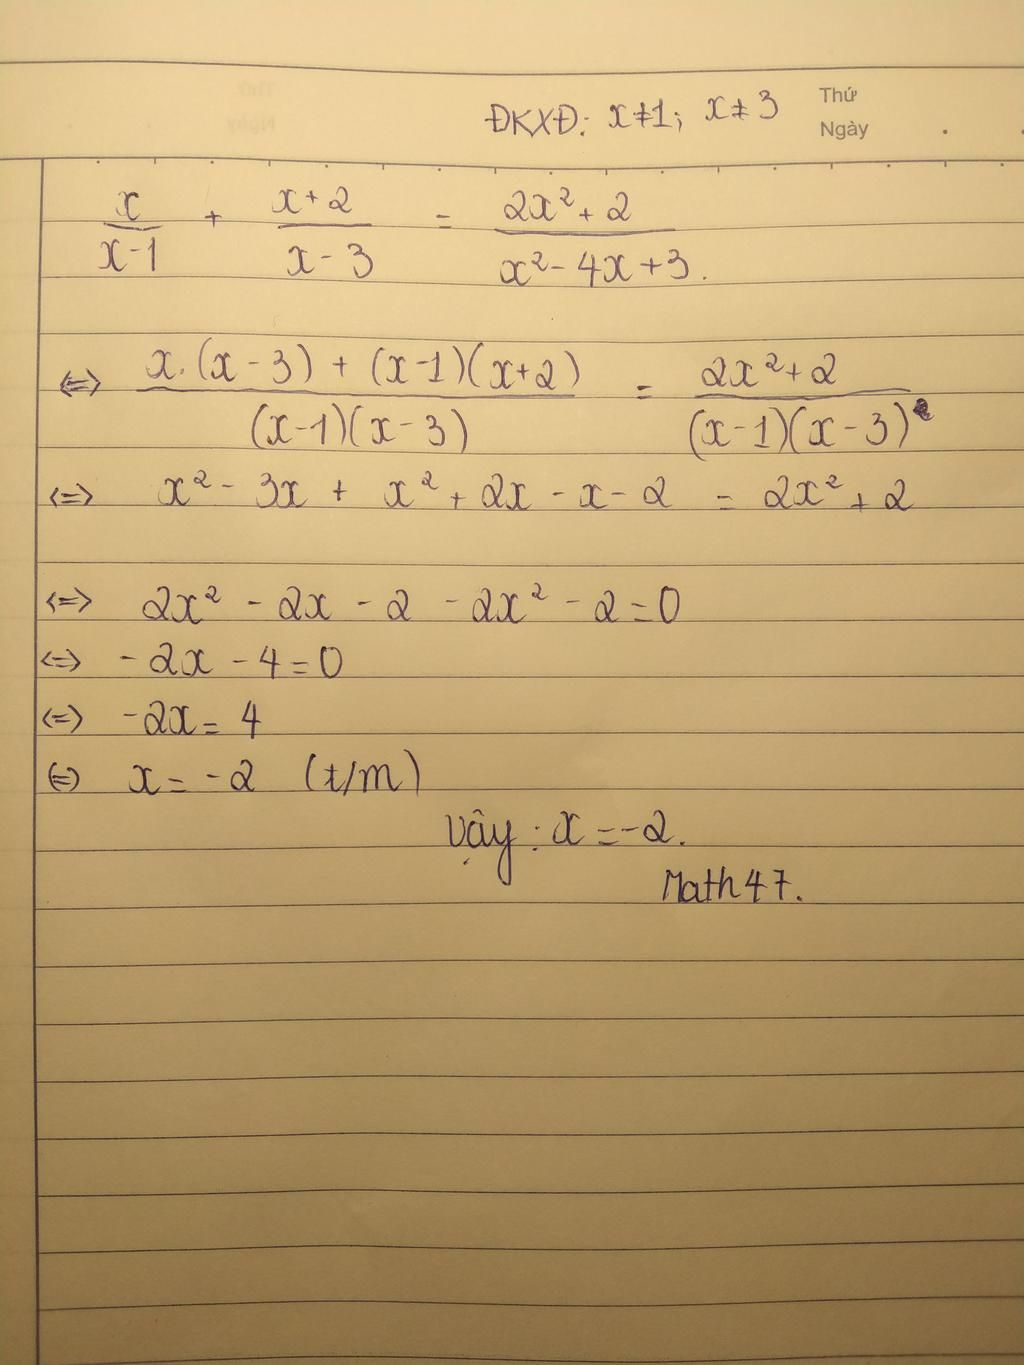 Thứ
ĐKXĐ: x≠1; x≠3
Ngày
x/(x-1) + (x+2)/(x-3) = (2x²+2)/(x²-4x+3).
<=> (x.(x-3) + (x-1)(x+2))/((x-1)(x-3)) = (2x²+2)/((x-1)(x-3))
<=> x² - 3x + x² + 2x - x - 2 = 2x² + 2
<=> 2x² - 2x - 2 - 2x² - 2 = 0
<=> -2x - 4 = 0
<=> -2x = 4
<=> x = -2 (t/m)
Vậy: x = -2.
Math47.